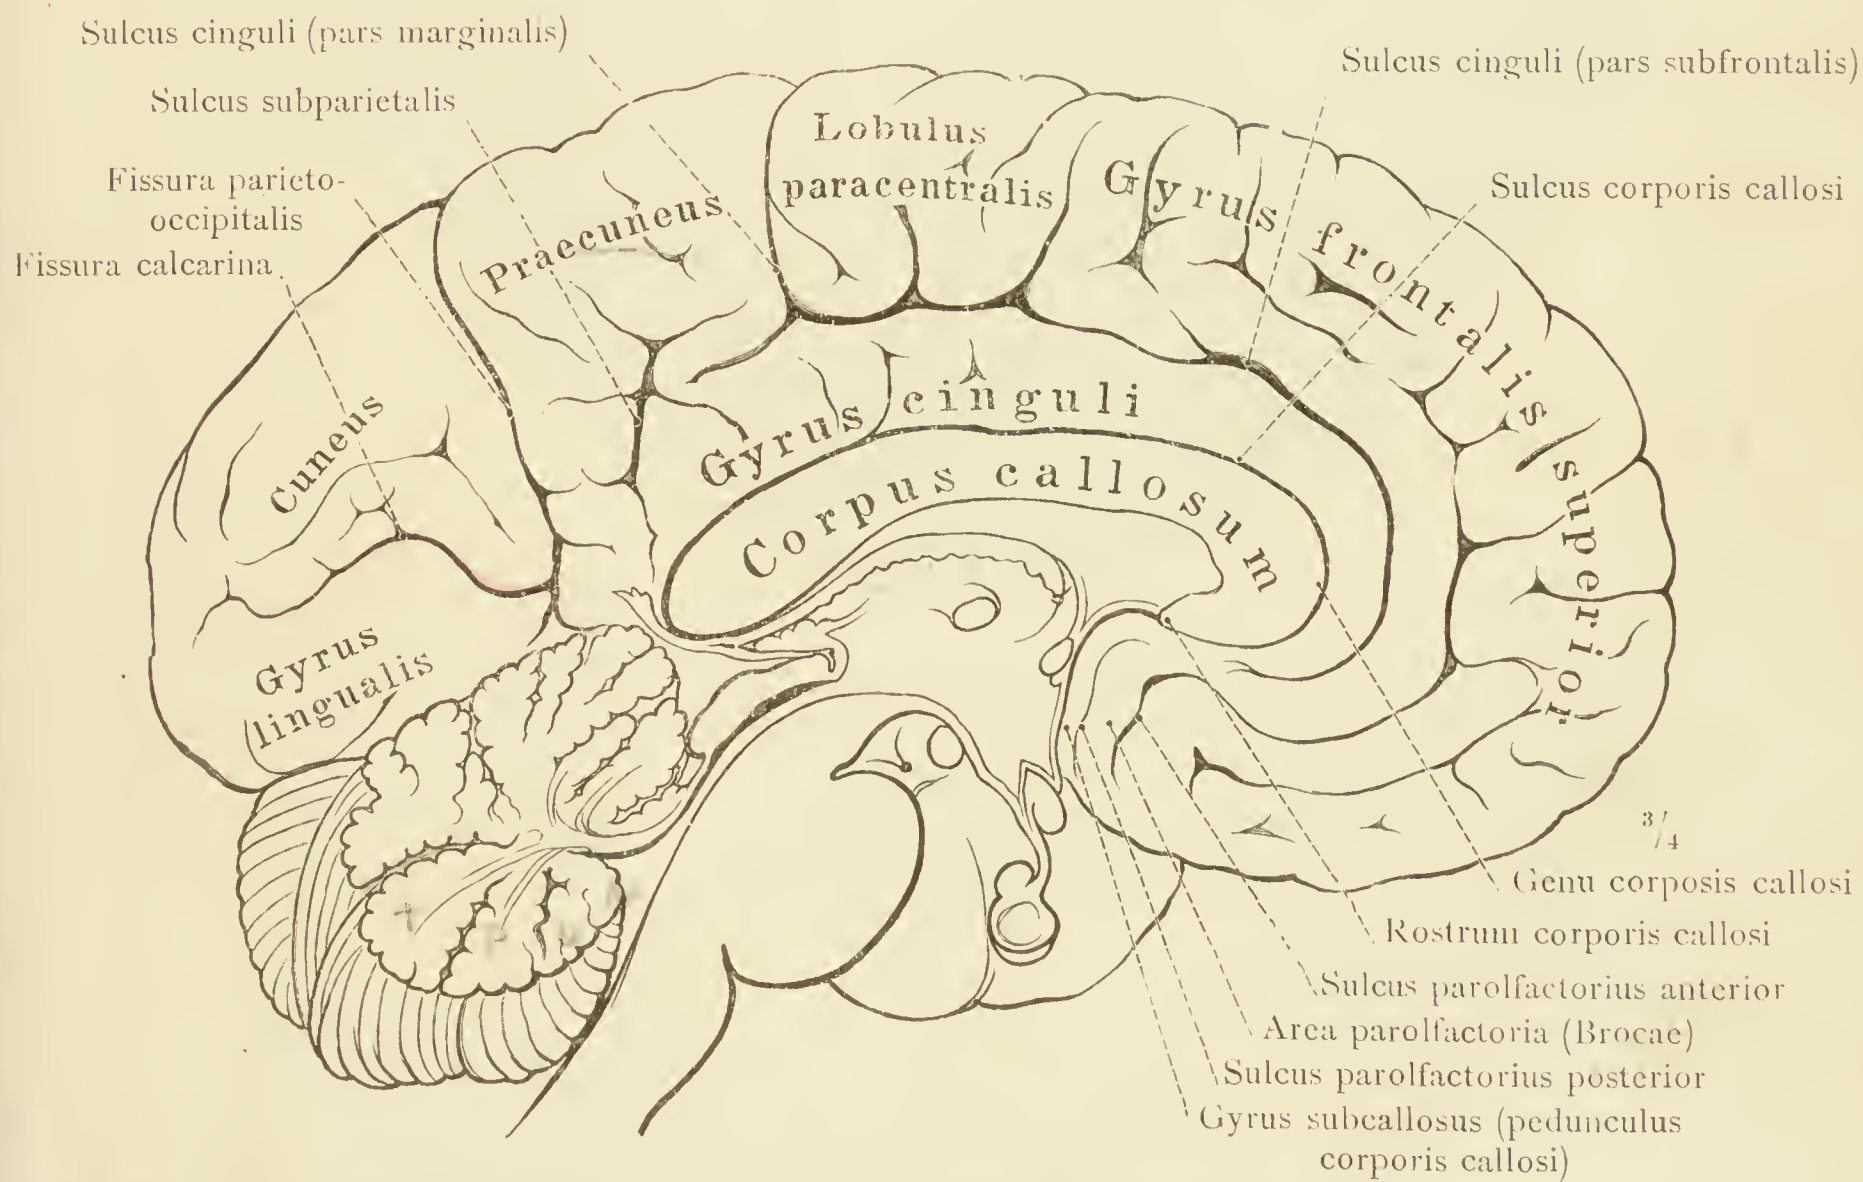 Sulcus cinguli (pars marginalis)
Sulcus cinguli (pars subfrontalis)
Sulcus subparietalis
Fissura parieto-
occipitalis
Sulcus corporis callosi
Fissura calcarina
Lobulus
paracentralis
Praecuneus
Gyrus frontalis superior
Cuneus
Gyrus cinguli
Corpus callosum
Gyrus
lingualis
3/4
Genu corposis callosi
Rostrum corporis callosi
Sulcus parolfactorius anterior
Area parolfactoria (Brocae)
Sulcus parolfactorius posterior
Gyrus subcallosus (pedunculus
corporis callosi)